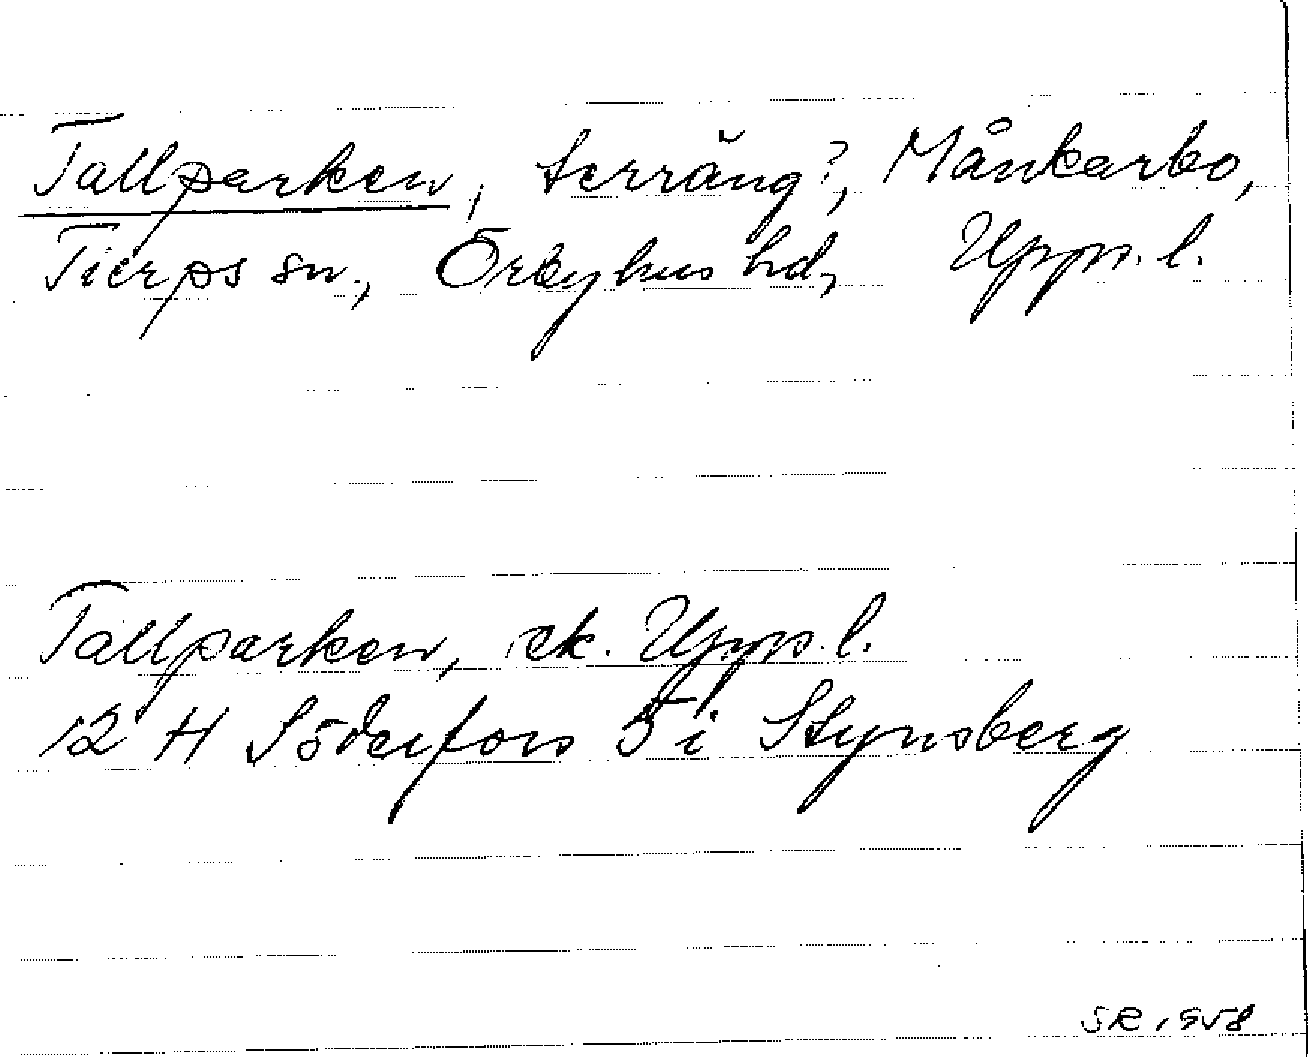 Tallparken, terräng?, Månkarbo,
Tierps sn., Örbyhus hd, Upps. l.
Tallparken, ek. Upps. l.
12 H Söderfors 5 i Stynsberg
SR 1958